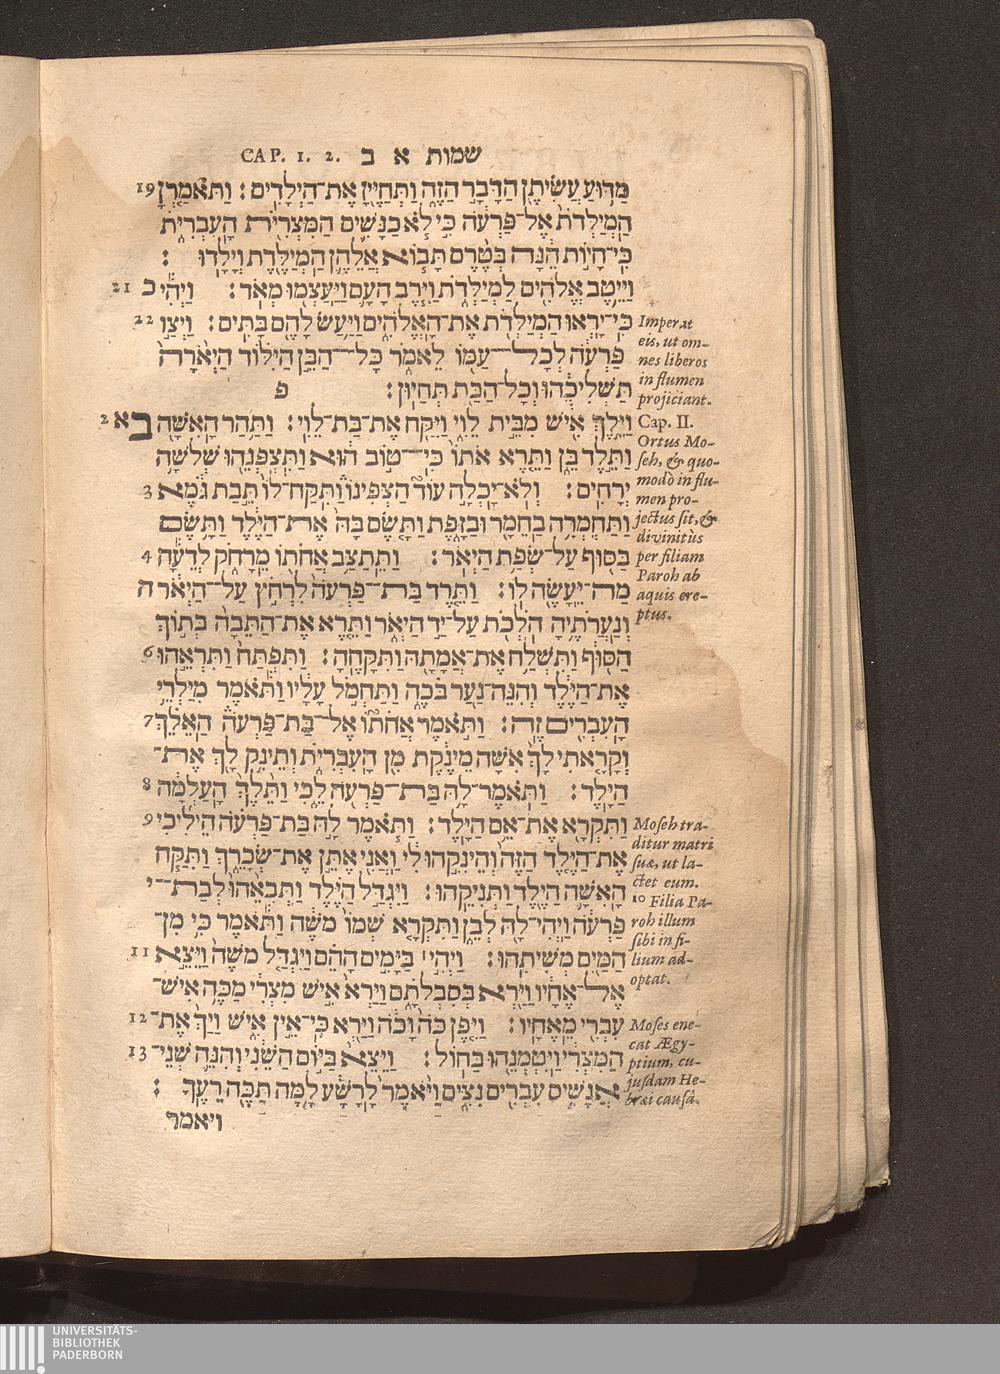 CAP. 1. 2. שמות א ב
מַדּ֥וּעַ עֲשִׂיתֶ֖ן הַדָּבָ֣ר הַזֶּ֑ה וַתְּחַיֶּ֖יןָ אֶת־הַיְלָדִֽים׃ וַתֹּאמַ֤רְןָ 19
הַֽמְיַלְּדֹת֙ אֶל־פַּרְעֹ֔ה כִּ֣י לֹ֧א כַנָּשִׁ֛ים הַמִּצְרִיֹּ֖ת הָֽעִבְרִיֹּ֑ת
כִּֽי־חָי֣וֹת הֵ֔נָּה בְּטֶ֨רֶם תָּב֧וֹא אֲלֵהֶ֛ן הַמְיַלֶּ֖דֶת וְיָלָֽדוּ׃
וַיֵּ֥יטֶב אֱלֹהִ֖ים לַֽמְיַלְּדֹ֑ת וַיִּ֧רֶב הָעָ֛ם וַיַּֽעַצְמ֖וּ מְאֹֽד׃ וַיְהִ֕י כ 21
כִּֽי־יָרְא֥וּ הַֽמְיַלְּדֹ֖ת אֶת־הָאֱלֹהִ֑ים וַיַּ֥עַשׂ לָהֶ֖ם בָּתִּֽים׃ וַיְצַ֣ו 22
פַּרְעֹ֔ה לְכָל־עַמּ֖וֹ לֵאמֹ֑ר כָּל־הַבֵּ֣ן הַיִּלּ֗וֹד הַיְאֹ֨רָה֙
תַּשְׁלִיכֻ֔הוּ וְכָל־הַבַּ֖ת תְּחַיּֽוּן׃ פ
וַיֵּ֥לֶךְ אִ֖ישׁ מִבֵּ֣ית לֵוִ֑י וַיִּקַּ֖ח אֶת־בַּת־לֵוִֽי׃ וַתַּ֥הַר הָאִשָּׁ֖ה ב א 2
וַתֵּ֣לֶד בֵּ֑ן וַתֵּ֤רֶא אֹתוֹ֙ כִּי־ט֣וֹב ה֔וּא וַֽתִּצְפְּנֵ֖הוּ שְׁלֹשָׁ֥ה
יְרָחִֽים׃ וְלֹא־יָכְלָ֣ה עוֹד֮ הַצְּפִינוֹ֒ וַתִּֽקַּֽח־לוֹ֙ תֵּ֣בַת גֹּ֔מֶא 3
וַתַּחְמְרָ֥ה בַחֵמָ֖ר וּבַזָּ֑פֶת וַתָּ֤שֶׂם בָּהּ֙ אֶת־הַיֶּ֔לֶד וַתָּ֥שֶׂם
בַּסּ֖וּף עַל־שְׂפַ֥ת הַיְאֹֽר׃ וַתֵּתַצַּ֥ב אֲחֹת֖וֹ מֵרָחֹ֑ק לְדֵעָ֕ה 4
מַה־יֵּעָשֶׂ֖ה לֽוֹ׃ וַתֵּ֤רֶד בַּת־פַּרְעֹה֙ לִרְחֹ֣ץ עַל־הַיְאֹ֔ר ה
וְנַעֲרֹתֶ֥יהָ הֹלְכֹ֖ת עַל־יַ֣ד הַיְאֹ֑ר וַתֵּ֤רֶא אֶת־הַתֵּבָה֙ בְּת֣וֹךְ
הַסּ֔וּף וַתִּשְׁלַ֥ח אֶת־אֲמָתָ֖הּ וַתִּקָּחֶֽהָ׃ וַתִּפְתַּח֙ וַתִּרְאֵ֣הוּ 6
אֶת־הַיֶּ֔לֶד וְהִנֵּה־נַ֖עַר בֹּכֶ֑ה וַתַּחְמֹ֣ל עָלָ֔יו וַתֹּ֕אמֶר מִיַּלְדֵ֥י
הָֽעִבְרִ֖ים זֶֽה׃ וַתֹּ֣אמֶר אֲחֹתוֹ֮ אֶל־בַּת־פַּרְעֹה֒ הַאֵלֵ֗ךְ 7
וְקָרָ֤אתִי לָךְ֙ אִשָּׁ֣ה מֵינֶ֔קֶת מִ֖ן הָעִבְרִיֹּ֑ת וְתֵינִ֥ק לָ֖ךְ אֶת־
הַיָּֽלֶד׃ וַתֹּֽאמֶר־לָ֥הּ בַּת־פַּרְעֹ֖ה לֵ֑כִי וַתֵּ֨לֶךְ֙ הָֽעַלְמָ֔ה 8
וַתִּקְרָ֖א אֶת־אֵ֥ם הַיָּֽלֶד׃ וַתֹּ֧אמֶר לָ֣הּ בַּת־פַּרְעֹ֗ה הֵילִ֜יכִי 9
אֶת־הַיֶּ֤לֶד הַזֶּה֙ וְהֵינִקִ֣הוּ לִ֔י וַאֲנִ֖י אֶתֵּ֣ן אֶת־שְׂכָרֵ֑ךְ וַתִּקַּ֧ח
הָאִשָּׁ֛ה הַיֶּ֖לֶד וַתְּנִיקֵֽהוּ׃ וַיִּגְדַּ֣ל הַיֶּ֗לֶד וַתְּבִאֵ֨הוּ֙ לְבַת־ י
פַּרְעֹ֔ה וַֽיְהִי־לָ֖הּ לְבֵ֑ן וַתִּקְרָ֤א שְׁמוֹ֙ מֹשֶׁ֔ה וַתֹּ֕אמֶר כִּ֥י מִן־
הַמַּ֖יִם מְשִׁיתִֽהוּ׃ וַיְהִ֣י׀ בַּיָּמִ֣ים הָהֵ֗ם וַיִּגְדַּ֤ל מֹשֶׁה֙ וַיֵּצֵ֣א 11
אֶל־אֶחָ֔יו וַיַּ֖רְא בְּסִבְלֹתָ֑ם וַיַּרְא֙ אִ֣ישׁ מִצְרִ֔י מַכֶּ֥ה אִישׁ־
עִבְרִ֖י מֵאֶחָֽיו׃ וַיִּ֤פֶן כֹּה֙ וָכֹ֔ה וַיַּ֖רְא כִּ֣י־אֵ֣ין אִ֑ישׁ וַיַּךְ֙ אֶת־ 12
הַמִּצְרִ֔י וַֽיִּטְמְנֵ֖הוּ בַּחֽוֹל׃ וַיֵּצֵא֙ בַּיּ֣וֹם הַשֵּׁנִ֔י וְהִנֵּ֛ה שְׁנֵֽי־ 13
אֲנָשִׁ֥ים עִבְרִ֖ים נִצִּ֑ים וַיֹּ֨אמֶר֙ לָֽרָשָׁ֔ע לָ֥מָּה תַכֶּ֖ה רֵעֶֽךָ׃
ויאמר
Imperat
eis, ut om-
nes liberos
in flumen
projiciant.
Cap. II.
Ortus Mo-
seh, & quo-
modò in flu-
men pro-
jectus sit, &
divinitùs
per filiam
Paroh ab
aquis ere-
ptus.
Moseh tra-
ditur matri
suæ, ut la-
ctet eum.
10 Filia Pa-
roh illum
sibi in fi-
lium ad-
optat.
Moses ene-
cat Ægy-
ptium, cu-
jusdam He-
bræi causâ.
UNIVERSITÄTS-
BIBLIOTHEK
PADERBORN